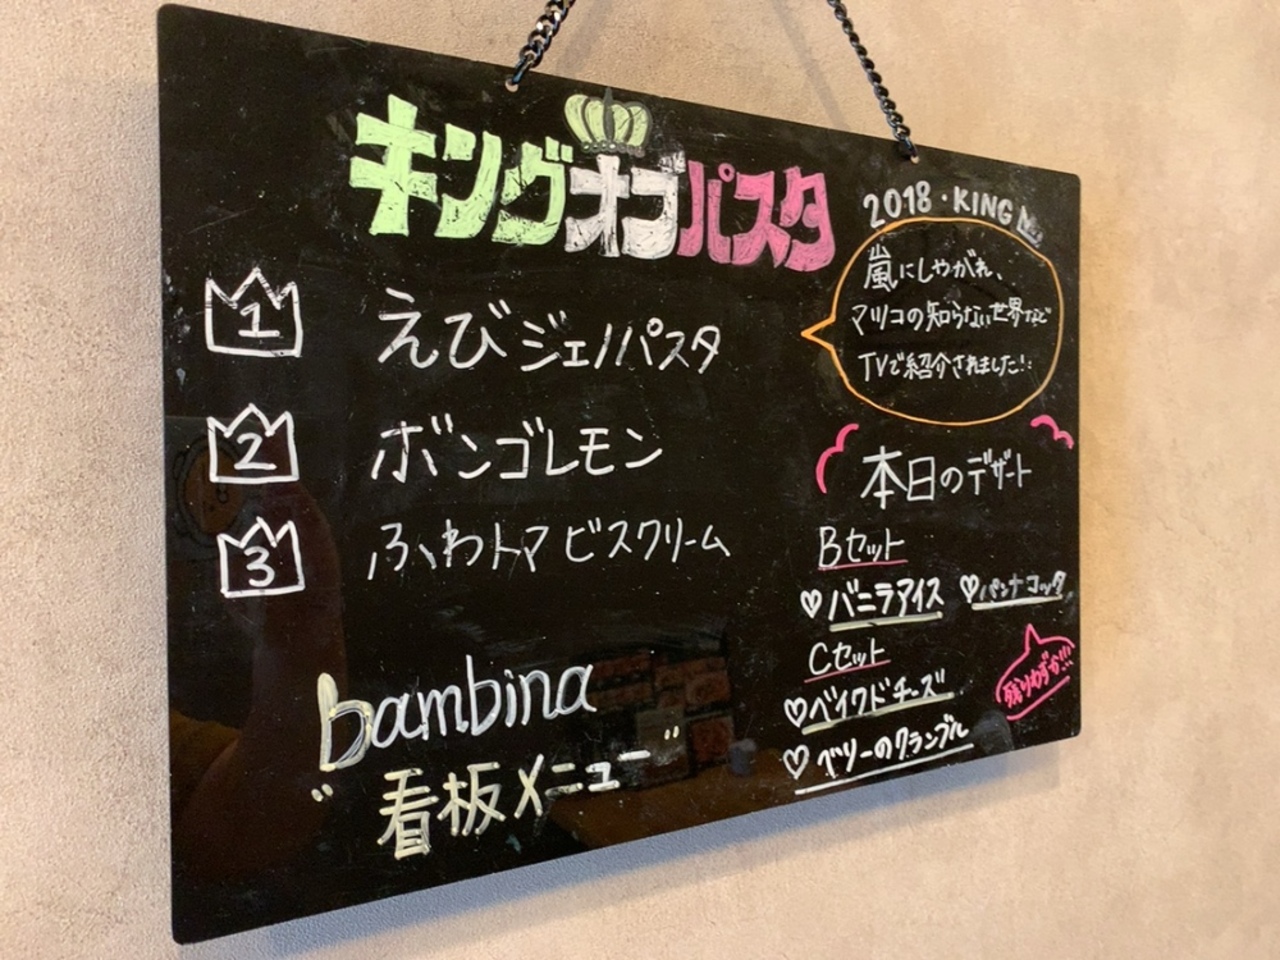 キングオブパスタ
1 えびジェノパスタ
2 ボンゴレモン
3 ふわトマビスクリーム
bambina
"看板メニュー"
2018・KING
嵐にしやがれ、
マツコの知らない世界など
TVで紹介されました!!
本日のデザート
Bセット
♡バニラアイス ♡パンナコッタ
Cセット
♡ベイクドチーズ
♡ベリーのクランブル
残りわずか!!!